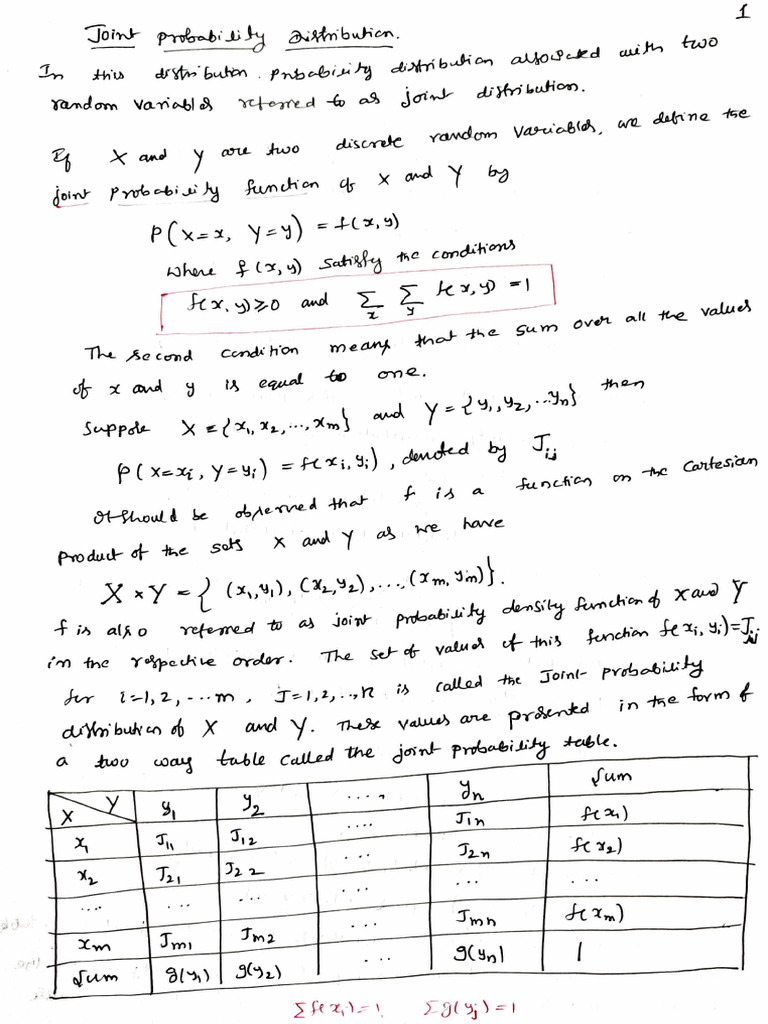 1
Joint probability Distribution.
In this distribution. probability distribution associated with two
random variables referred to as joint distribution.
If X and Y are two discrete random variables, we define the
joint probability function of X and Y by
P(X=x, Y=y) = f(x,y)
where f(x,y) satisfy the conditions
f(x,y)≥0 and Σ_x Σ_y f(x,y) = 1
The second condition means that the sum over all the values
of x and y is equal to one.
Suppose X = {x₁, x₂, ..., xₘ} and Y = {y₁, y₂, ...yₙ} then
P(X=xᵢ, Y=yᵢ) = f(xᵢ, yᵢ), denoted by Jᵢⱼ
It should be observed that f is a function on the Cartesian
product of the sets X and Y as we have
X × Y = { (x₁,y₁), (x₂,y₂), ... (xₘ, yₘ)}.
f is also referred to as joint probability density function of X and Y
in the respective order. The set of values of this function f(xᵢ, yᵢ)=Jᵢⱼ
for i=1,2, ...m, J=1,2,..,n is called the Joint-probability
distribution of X and Y. These values are presented in the form of
a two way table called the joint probability table.
X Y y₁ y₂ .... yₙ Sum
x₁ J₁₁ J₁₂ .... J₁ₙ f(x₁)
x₂ J₂₁ J₂₂ ... J₂ₙ f(x₂)
.... ... ... ... ... ...
xₘ Jₘ₁ Jₘ₂ ... Jₘₙ f(xₘ)
Sum g(y₁) g(y₂) ... g(yₙ) 1
Σf(xᵢ)=1, Σg(yⱼ)=1